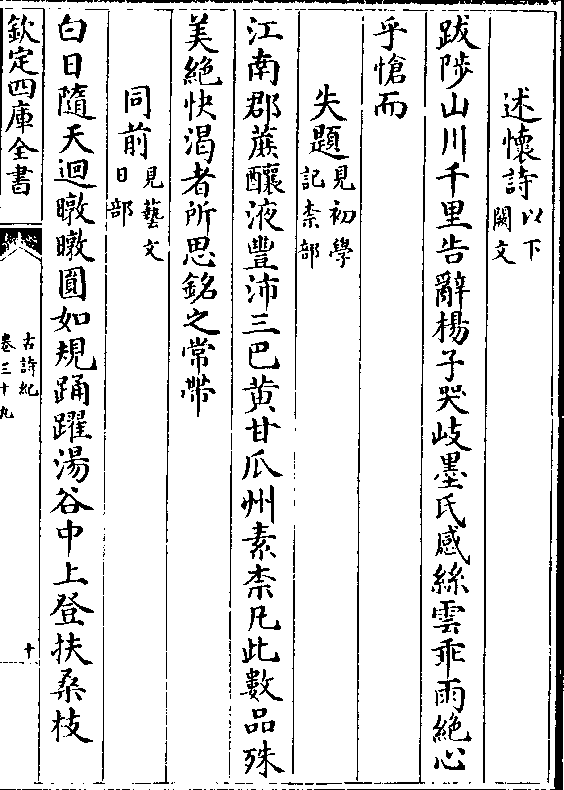 述懷詩以下闕文
跋陟山川千里告辭楊子哭岐墨氏感絲雲乖雨絶心
乎愴而
失題見初學記柰部
江南郡蔗釀液豐沛三巴黄甘瓜州素柰凡此數品殊
美絶快渇者所思銘之常帶
同前見藝文日部
白日隨天迴暾暾圓如規踊躍湯谷中上登扶桑枝
欽定四庫全書
古詩紀
卷三十九
十